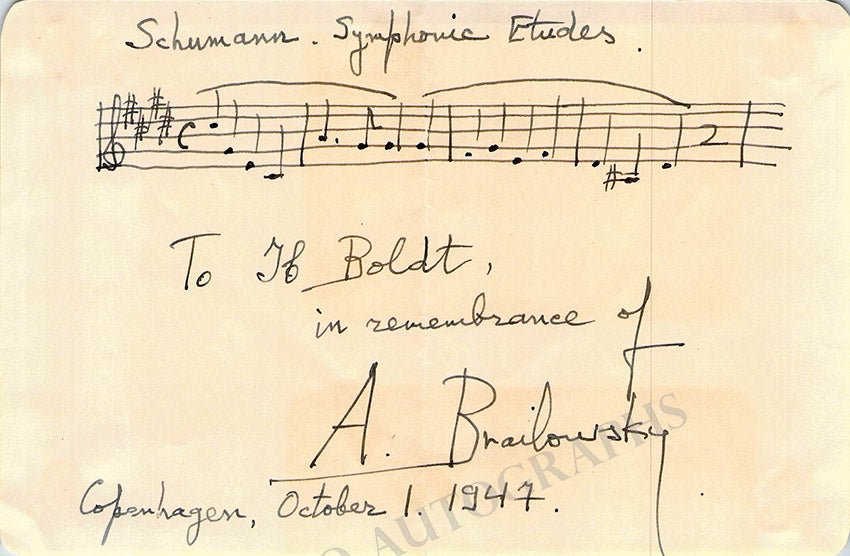 Schumann. Symphonic Etudes.
C
2
To Ib Boldt,
in remembrance of
A. Brailowsky
Copenhagen, October 1. 1947.
AUTOGRAPHS